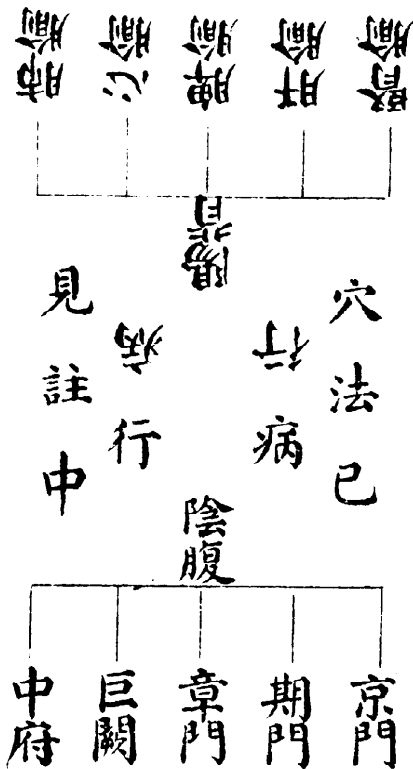 腎腧
肝腧
脾腧
心腧
肺腧
陽背
穴法已
行病
病行
見註中
陰腹
京門
期門
章門
巨闕
中府